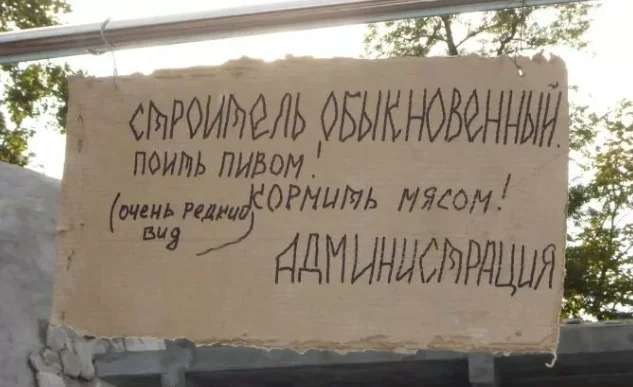 СТРОИТЕЛЬ ОБЫКНОВЕННЫЙ.
ПОИТЬ ПИВОМ!
КОРМИТЬ МЯСОМ!
(очень редкий
вид)
АДМИНИСТРАЦИЯ